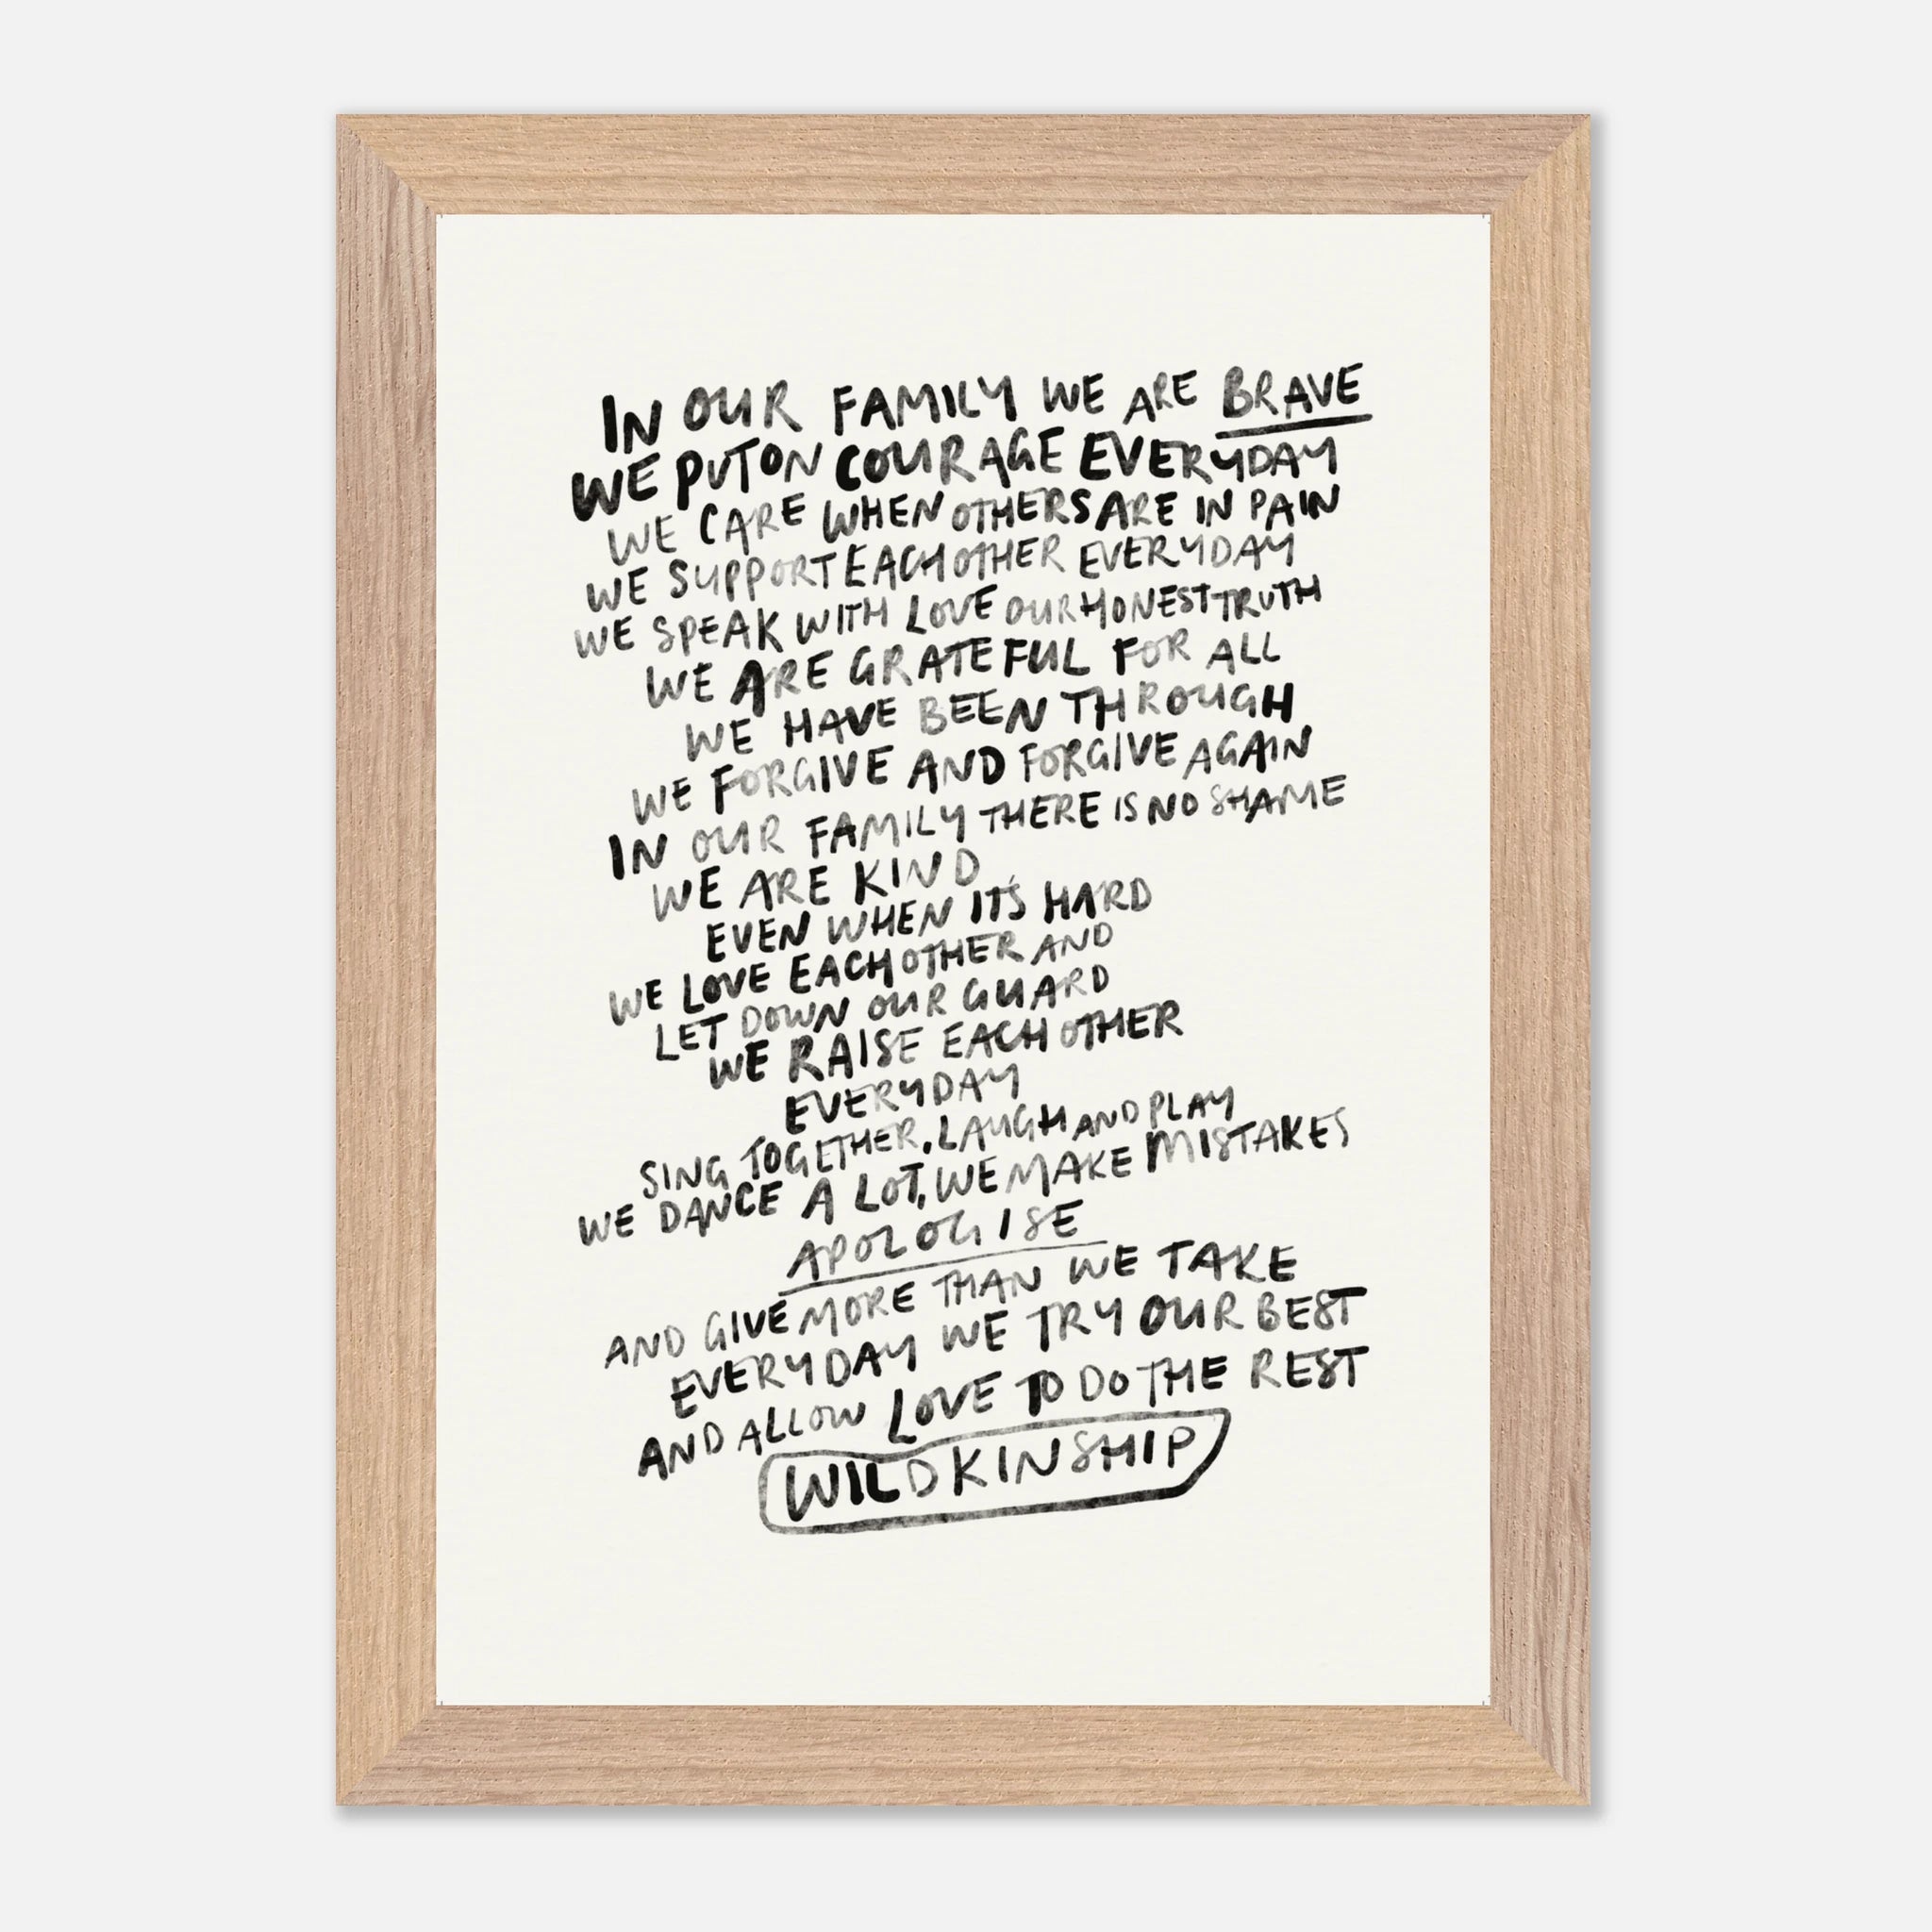 IN OUR FAMILY WE ARE BRAVE
WE PUT ON COURAGE EVERYDAY
WE CARE WHEN OTHERS ARE IN PAIN
WE SUPPORT EACH OTHER EVERYDAY
WE SPEAK WITH LOVE OUR HONEST TRUTH
WE ARE GRATEFUL FOR ALL
WE HAVE BEEN THROUGH
WE FORGIVE AND FORGIVE AGAIN
IN OUR FAMILY THERE IS NO SHAME
WE ARE KIND
EVEN WHEN IT'S HARD
WE LOVE EACH OTHER AND
LET DOWN OUR GUARD
WE RAISE EACH OTHER
EVERYDAY
SING TOGETHER, LAUGH AND PLAY
WE DANCE A LOT, WE MAKE MISTAKES
APOLOGISE
AND GIVE MORE THAN WE TAKE
EVERYDAY WE TRY OUR BEST
AND ALLOW LOVE TO DO THE REST
WILD KINSHIP